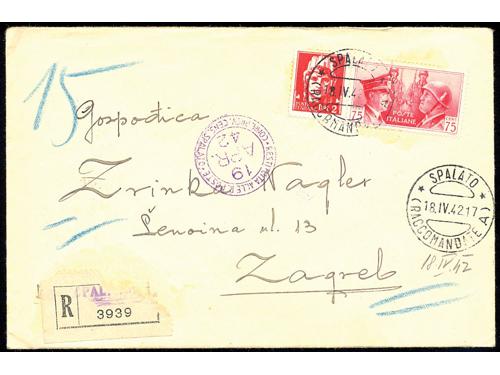 15
SPALATO
18.IV.42
POSTE ITALIANE
LIRE 2
75
POSTE
ITALIANE
CENT
75
Gospođica
19
APR.
42
Zrinka Nagler
Šenoina ul. 13
Zagreb
SPALATO
18.IV.42.17
(RACCOMANDATE A)
18 IV. 42
R
3939